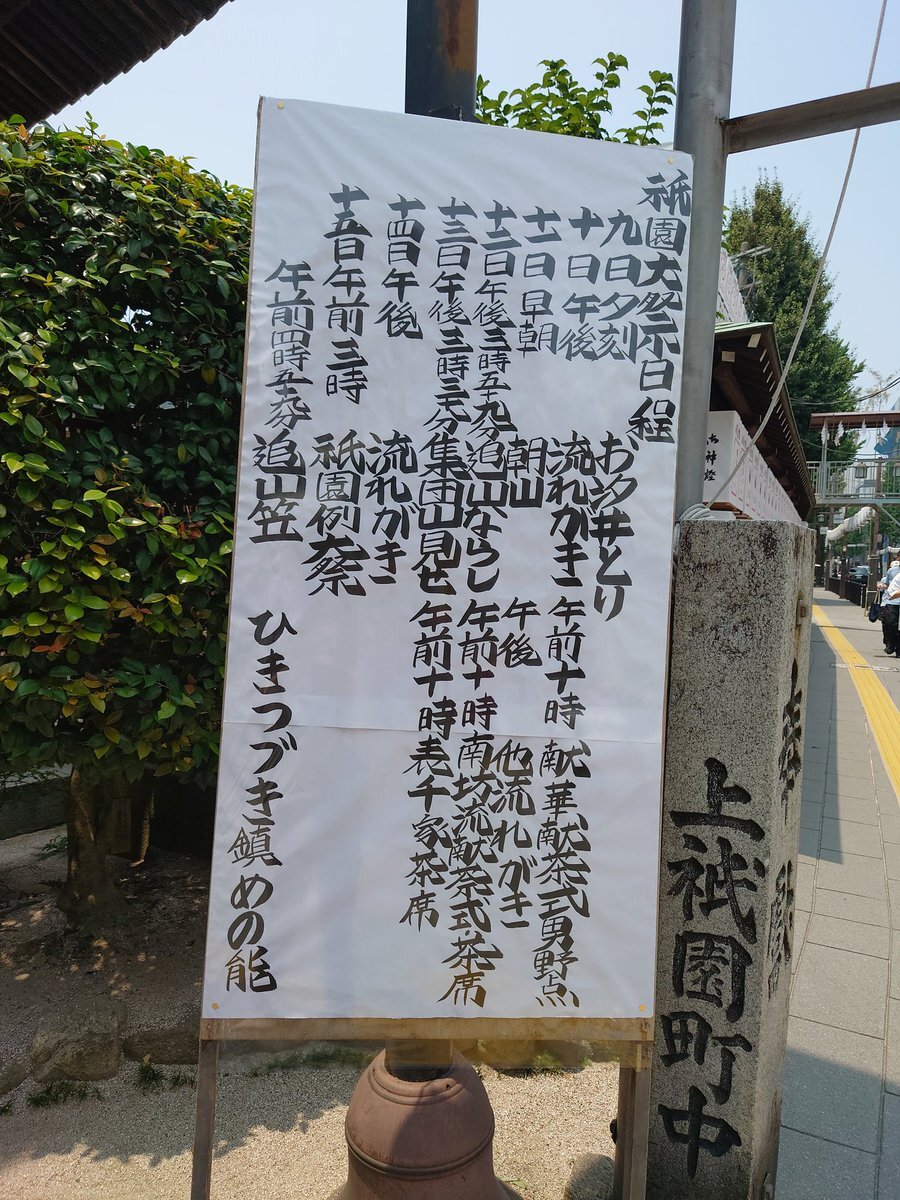 祇園大祭日程
九日夕刻 お汐井とり
十日午後 流れがき 午前十時 献華献茶式男野点
十一日早朝 朝山 午後 他流れがき
十二日午後三時五十九分追山ならし 午前十時南坊流献茶式・茶席
十三日午後三時三十分集団山見せ 午前十時表千家茶席
十四日午後 流れがき
十五日午前三時 祇園例祭
午前四時五十九分 追山笠 ひきつづき鎮めの能
上祇園町中